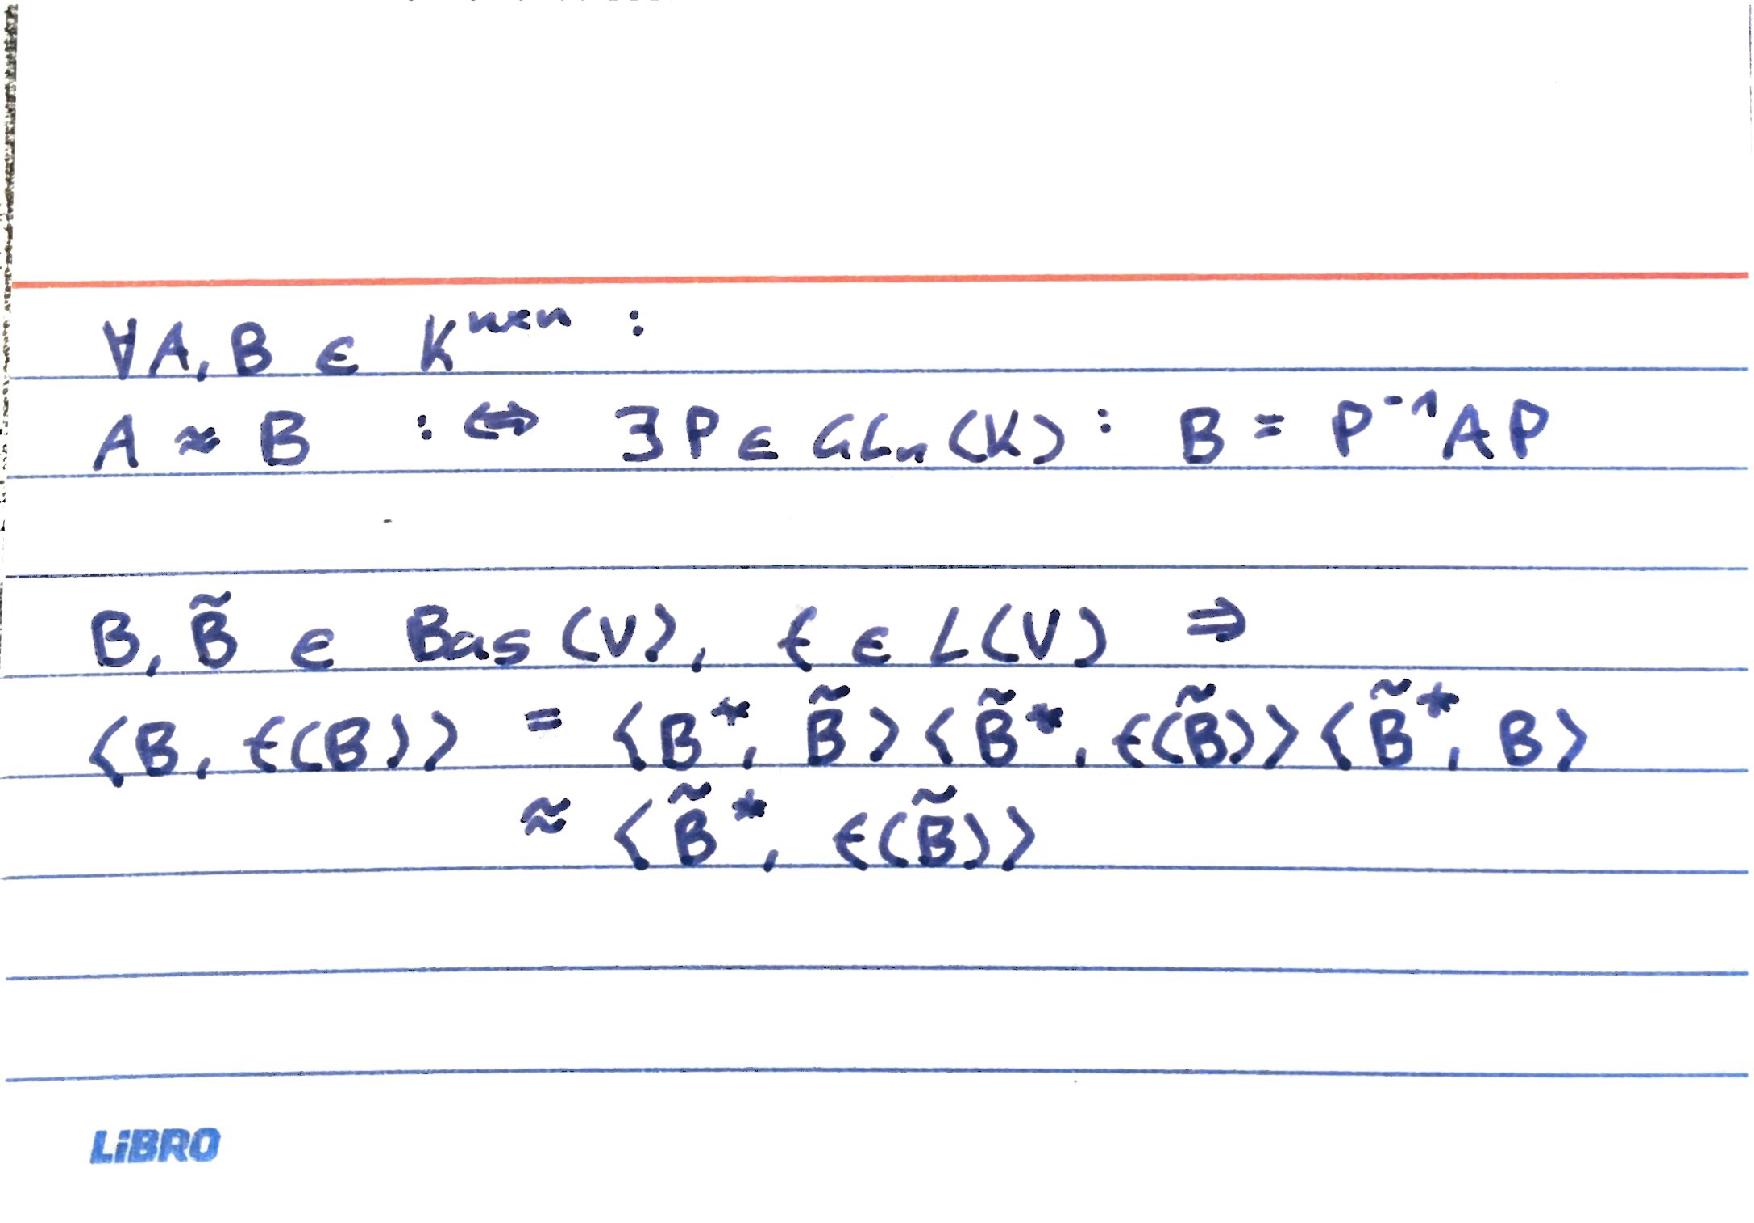 ∀A, B ∈ K^{n×n} :
A ≈ B :⇔ ∃P ∈ GL_n(K): B = P^{-1}AP
B, B̃ ∈ Bas(V), f ∈ L(V) ⇒
⟨B, f(B)⟩ = ⟨B*, B̃⟩⟨B̃*, f(B̃)⟩⟨B̃*, B⟩
≈ ⟨B̃*, f(B̃)⟩
LiBRO